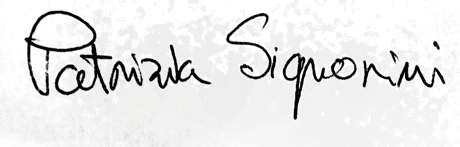 Patrizia Signorini